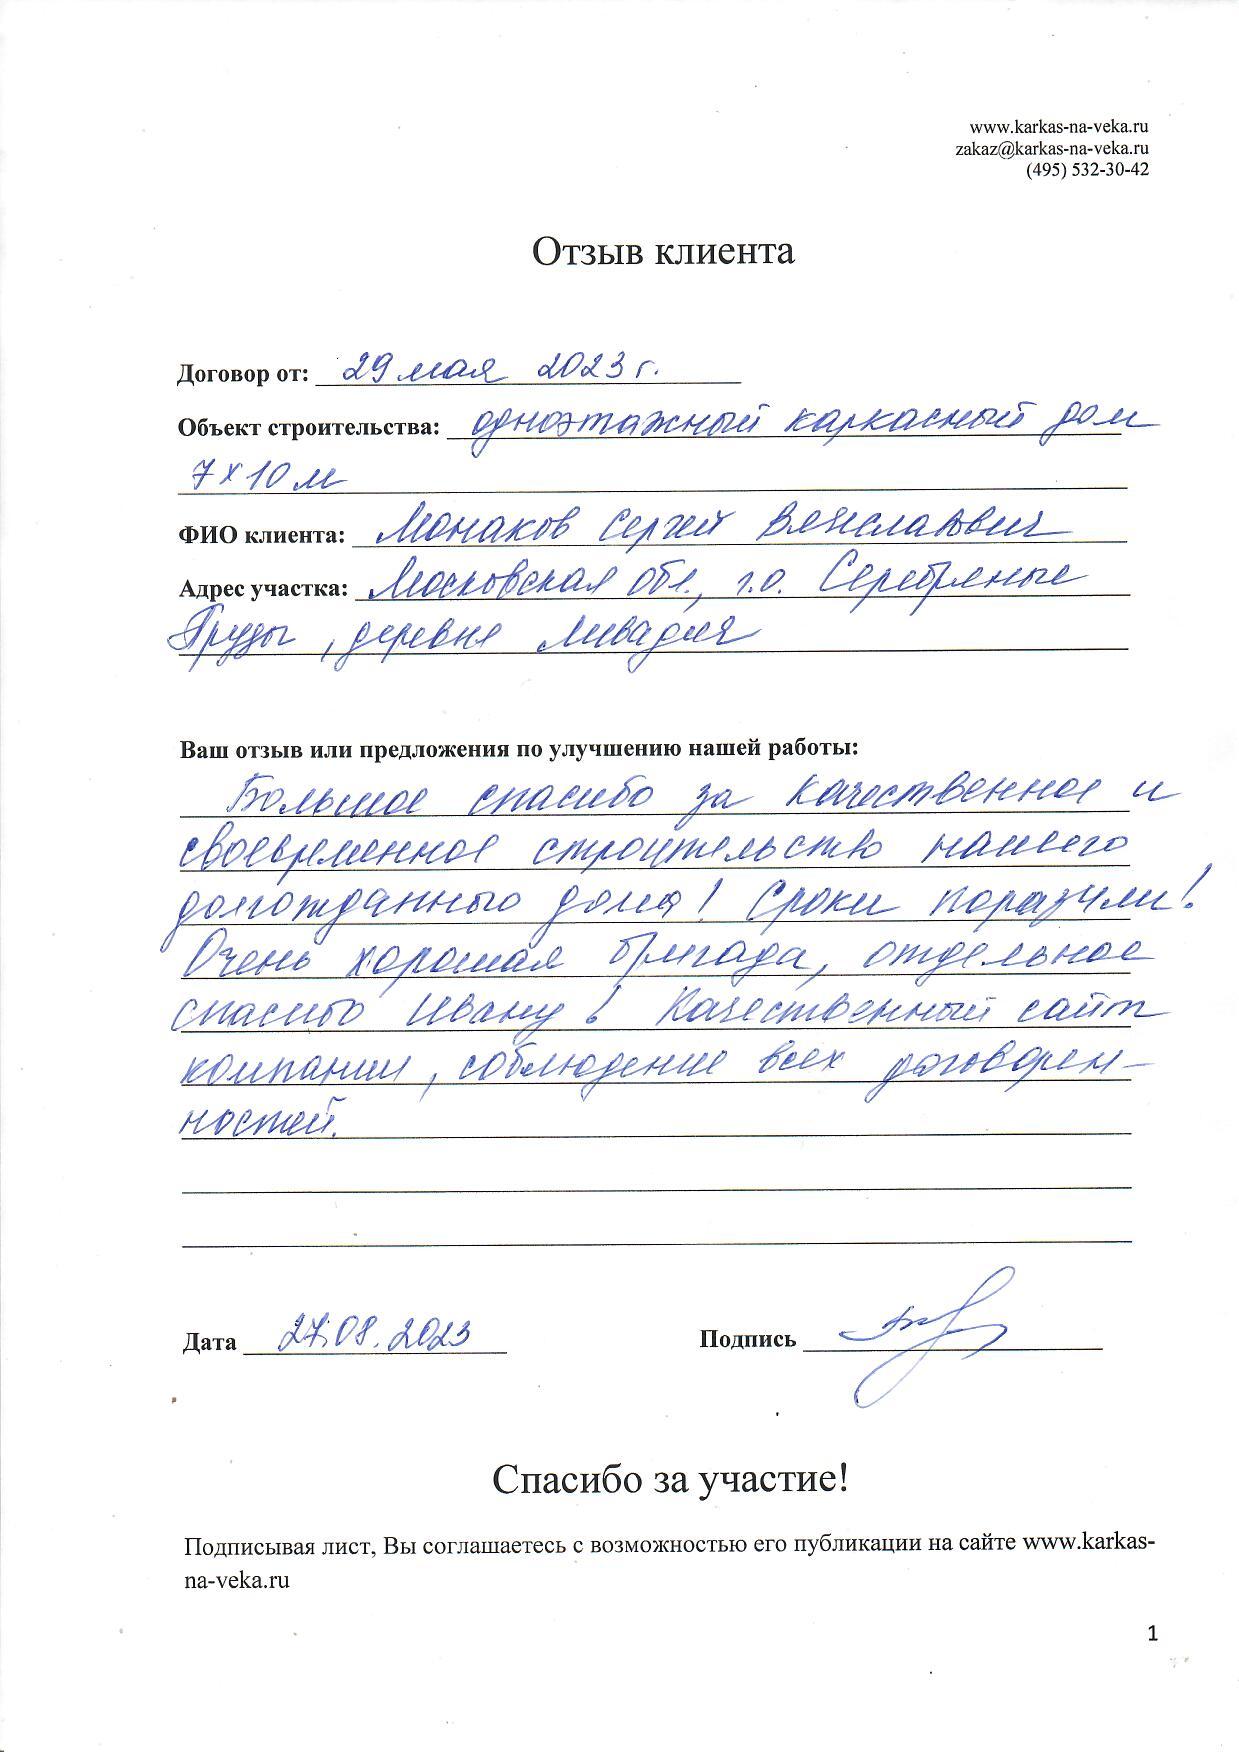 www.karkas-na-veka.ru
zakaz@karkas-na-veka.ru
(495) 532-30-42
Отзыв клиента
Договор от: 29 мая 2023 г.
Объект строительства: одноэтажный каркасный дом
7х10 м
ФИО клиента: Монаков Сергей Вячеславович
Адрес участка: Московская обл., г.о. Серебряные
Пруды, деревня Ливадия
Ваш отзыв или предложения по улучшению нашей работы:
Большое спасибо за качественное и
своевременное строительство нашего
долгожданного дома! Сроки поразили!
Очень хорошая бригада, отдельное
спасибо Ивану! Качественный сайт
компании, соблюдение всех договорен-
ностей.
Дата 27.08.2023 Подпись
Спасибо за участие!
Подписывая лист, Вы соглашаетесь с возможностью его публикации на сайте www.karkas-
na-veka.ru
1